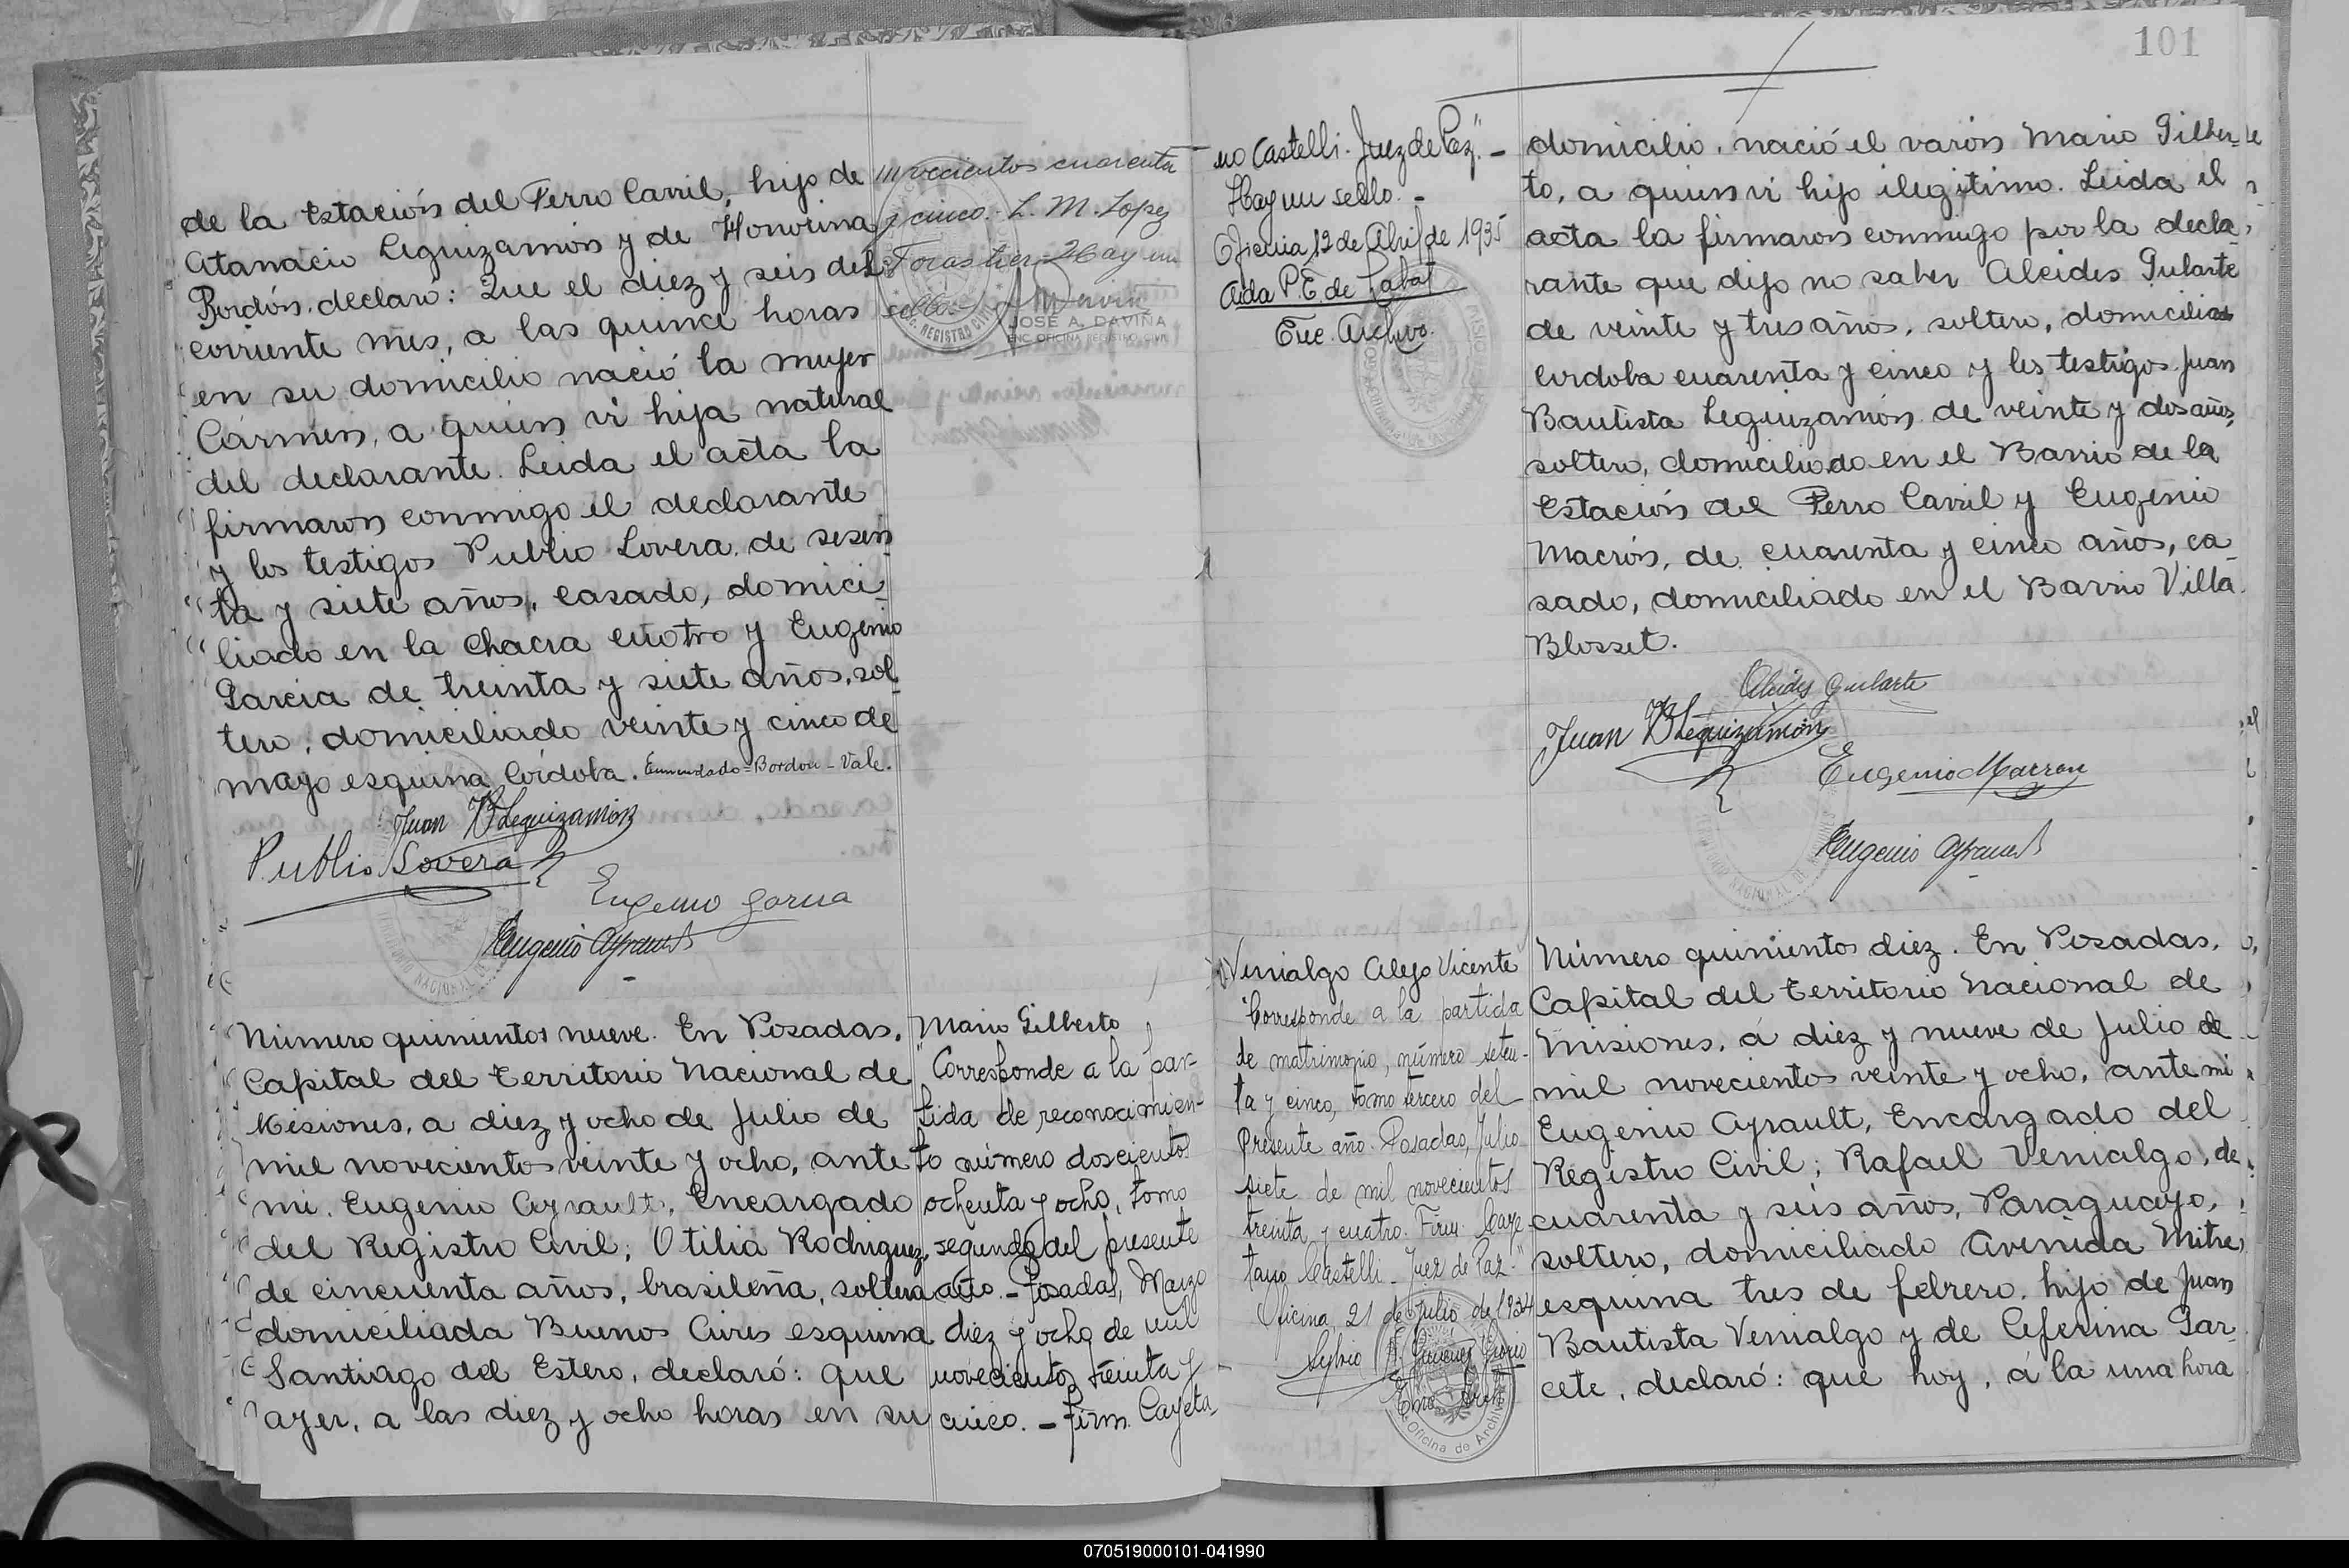 de la Estación del Ferro Carril, hijo de
Atanacio Leguizamón y de Honorina
Bordón, declaró: Que el diez y seis del
corriente mes, a las quince horas
en su domicilio nació la mujer
Cármen, a quien vi hija natural
del declarante. Leida el acta la
firmaron conmigo el declarante
y los testigos Publio Lovera, de sesen
ta y siete años, casado, domici
liado en la Chacra cuatro y Eugenio
Garcia de treinta y siete años, sol
tero, domiciliado veinte y cinco de
mayo esquina Córdoba. Enmendado=Bordon-Vale.
Juan B Leguizamón
Publio Lovera
Eugenio Garcia
Eugenio Ayrault
novecientos cuarenta
y cinco.- L. M. Lopez
Forastier- Hay un
sello.-
JOSÉ A. DAVIÑA
ENC. OFICINA REGISTRO CIVIL
Número quinientos nueve. En Posadas,
Capital del Territorio Nacional de
Misiones, a diez y ocho de Julio de
mil novecientos veinte y ocho, ante
mi, Eugenio Ayrault, Encargado
del Registro Civil; Otilia Rodriguez,
de cincuenta años, brasileña, soltera
domiciliada Buenos Aires esquina
Santiago del Estero, declaró: que
ayer, a las diez y ocho horas en su
Mario Gilberto
"Corresponde a la par-
tida de reconocimien-
to número doscientos
ochenta y ocho, tomo
segundo del presente
año.- Posadas, Marzo
diez y ocho de mil
novecientos treinta y
cinco.- Firm. Cayeta-
101
no Castelli. Juez de Paz."-
Hay un sello.-
Oficina 12 de Abril de 1935
Aida P. E. de
Enc. Archivo.
domicilio, nació el varón Mario Gilber-
to, a quien vi hijo ilegitimo. Leida el
acta la firmaron conmigo por la decla-
rante que dijo no saber Alcides Gularte
de veinte y tres años, soltero, domicilia
Córdoba cuarenta y cinco y los testigos Juan
Bautista Leguizamón de veinte y dos años,
soltero, domiciliado en el Barrio de la
Estación del Ferro Carril y Eugenio
Macrón, de cuarenta y cinco años, ca
sado, domiciliado en el Barrio Villa
Blosset.
Alcides Gularte
Juan B Leguizamón
Eugenio Marron
Eugenio Ayrault
Venialgo Alejo Vicente
"Corresponde a la partida
de matrimonio, número seten-
ta y cinco, tomo tercero del
presente año. Posadas, Julio
siete de mil novecientos
treinta y cuatro. Firm. Caye-
tano Castelli - Juez de Paz."
Oficina, 21 de Julio de 1934
Oficina de Archivo
Número quinientos diez. En Posadas,
Capital del Territorio Nacional de
Misiones, á diez y nueve de Julio de
mil novecientos veinte y ocho, ante mi
Eugenio Ayrault, Encargado del
Registro Civil; Rafael Venialgo, de
cuarenta y seis años, Paraguayo,
soltero, domiciliado Avenida Mitre
esquina tres de febrero, hijo de Juan
Bautista Venialgo y de Ceferina Gar-
cete, declaró: que hoy, á la una hora
070519000101-041990